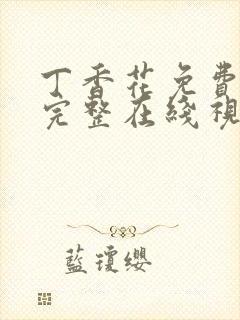 丁香花免費
完整在綫視
藍瓊纓